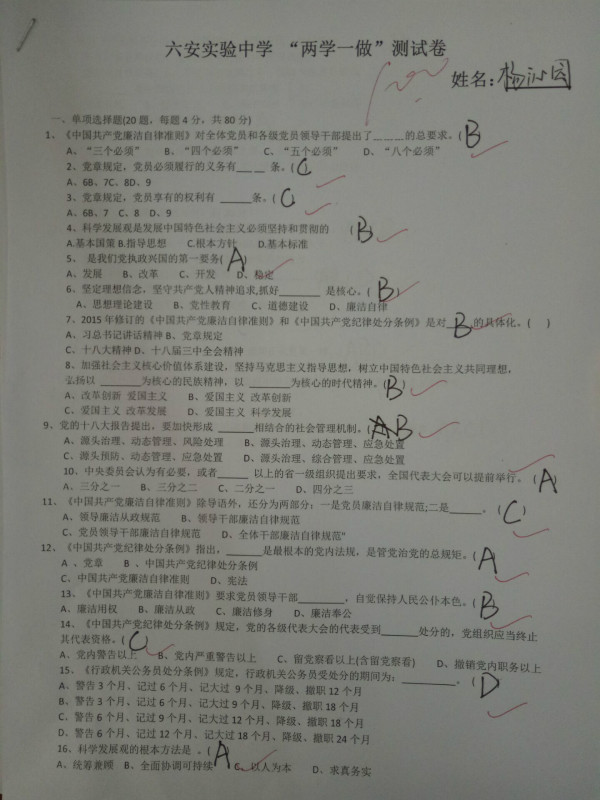 六安实验中学 “两学一做”测试卷
100
姓名：杨沁园
一、单项选择题(20 题，每题 4 分，共 80 分)
1、《中国共产党廉洁自律准则》对全体党员和各级党员领导干部提出了____的总要求。( B
A、“三个必须” B、“四个必须” C、“五个必须” D、“八个必须”
2、党章规定，党员必须履行的义务有____ 条。( C
A、6B、7C、8D、9
3、党章规定，党员享有的权利有 _____条。( C
A、6B、7 C、8 D、9
4、科学发展观是发展中国特色社会主义必须坚持和贯彻的 ( B )
A.基本国策 B.指导思想 C.根本方针 D.基本标准
5、 是我们党执政兴国的第一要务( A
A、发展 B、改革 C、开发 D、稳定
6、坚定理想信念，坚守共产党人精神追求,抓好_______ 是核心。( B )
A、思想理论建设 B、党性教育 C、道德建设 D、廉洁自律
7、2015 年修订的《中国共产党廉洁自律准则》和《中国共产党纪律处分条例》是对 B 的具体化。( )
A、习总书记讲话精神 B、党章规定
C、十八大精神 D、十八届三中全会精神
8、加强社会主义核心价值体系建设，坚持马克思主义指导思想，树立中国特色社会主义共同理想，
弘扬以 _______为核心的民族精神，以 _______为核心的时代精神。( B )
A、改革创新 爱国主义 B、爱国主义 改革创新
C、爱国主义 改革发展 D、爱国主义 科学发展
9、党的十八大报告提出，要加快形成 ______相结合的社会管理机制。( B
A、源头治理、动态管理、风险处理 B、源头治理、动态管理、应急处置
C、源头预防、动态管理、应急处置 D、源头治理、综合管理、应急处置
10、中央委员会认为有必要，或者_____ 以上的省一级组织提出要求，全国代表大会可以提前举行。( A )
A、三分之一 B、三分之二 C、二分之一 D、四分之三
11、《中国共产党廉洁自律准则》除导语外，还分为两部分：一是党员廉洁自律规范;二是_____。 ( C )
A、领导廉洁从政规范 B、领导干部廉洁自律规范
C、党员领导干部廉洁自律规范 D、全体干部廉洁自律规范"
12、《中国共产党纪律处分条例》指出，______是最根本的党内法规，是管党治党的总规矩。( A
A 、党章 B 、中国共产党纪律处分条例
C、中国共产党廉洁自律准则 D、宪法
13、《中国共产党廉洁自律准则》要求党员领导干部________，自觉保持人民公仆本色。( B )
A、廉洁用权 B、廉洁从政 C、廉洁修身 D、廉洁奉公
14、《中国共产党纪律处分条例》规定，党的各级代表大会的代表受到_____处分的，党组织应当终止
其代表资格。( C
A、党内警告以上 B、党内严重警告以上 C、留党察看以上(含留党察看) D、撤销党内职务以上
15、《行政机关公务员处分条例》规定，行政机关公务员受处分的期间为：________。( D
A、警告 3 个月、记过 6 个月、记大过 9 个月、降级、撤职 12 个月
B、警告 3 个月、记过 6 个月、记大过 9 个月、降级、撤职 18 个月
C、警告 6 个月、记过 9 个月、记大过 12 个月、降级、撤职 18 个月
D、警告 6 个月、记过 12 个月、记大过 18 个月、降级、撤职 24 个月
16、科学发展观的根本方法是 。( A
A、统筹兼顾 B、全面协调可持续 C、以人为本 D、求真务实